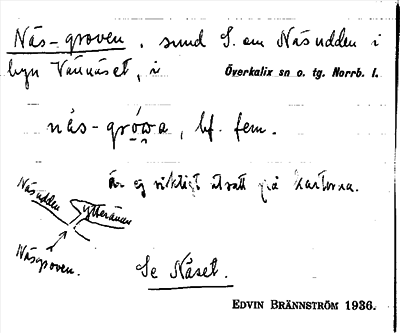 Näs-groven, sund S. om Näsudden i
byn Vännäset, i Överkalix sn o. tg. Norrb. l.
nä̀s-grówa, bf. fem.
Är ej riktigt utsatt på kartorna.
Näsudden
Ytterännan
Näsgroven.
Se Näset.
EDVIN BRÄNNSTRÖM 1936.